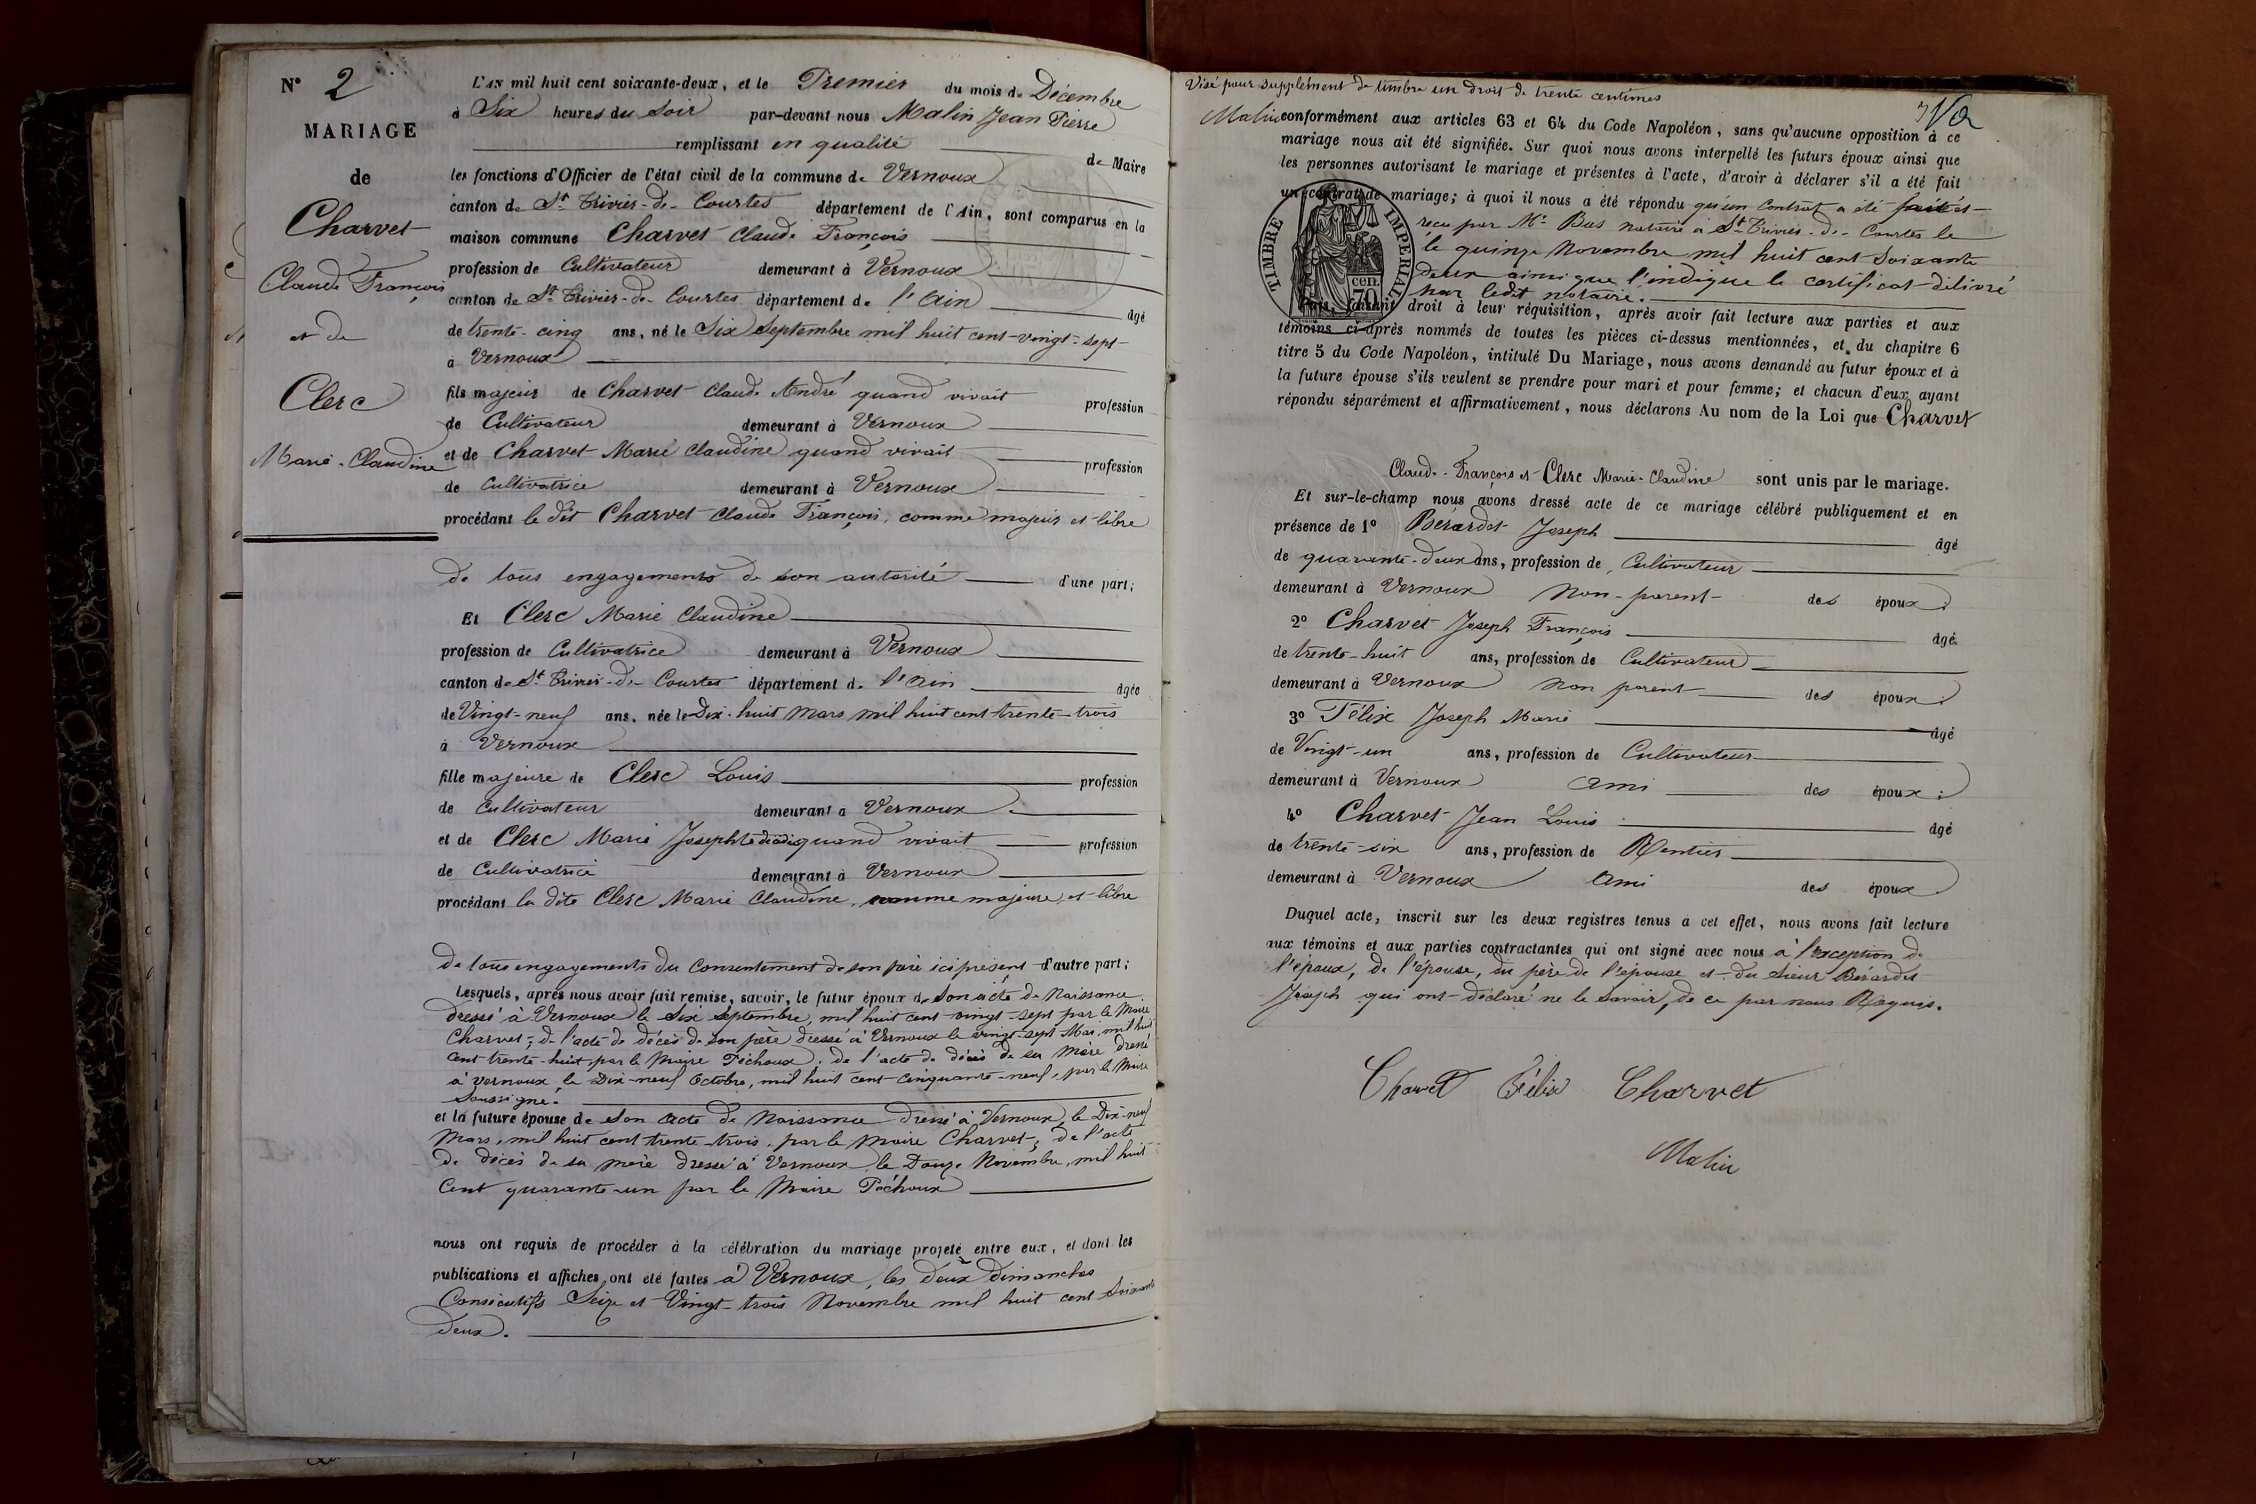 N° 2
MARIAGE
de
Charvet
Claude François
et de
Clerc
Marie-Claudine
L'AN mil huit cent soixante-deux, et le Premier du mois de Décembre
à Six heures du Soir par-devant nous Malin Jean Pierre
remplissant en qualité de Maire
les fonctions d'Officier de l'état civil de la commune de Vernoux
canton de St Trivier-de-Courtes département de l'Ain, sont comparus en la
maison commune Charvet Claude François
profession de Cultivateur demeurant à Vernoux
canton de St Trivier-de-Courtes département de l'Ain âgé
de trente-cinq ans, né le Six Septembre mil huit cent-vingt-sept
à Vernoux
fils majeur de Charvet Claude André quand vivait profession
de Cultivateur demeurant à Vernoux
et de Charvet Marie Claudine quand vivait profession
de Cultivatrice demeurant à Vernoux
procédant le dit Charvet Claude François, comme majeur et libre
de tous engagements de son autorité d'une part;
Et Clerc Marie Claudine
profession de Cultivatrice demeurant à Vernoux
canton de St Trivier-de-Courtes département de l'Ain âgée
de Vingt-neuf ans, née le Dix-huit Mars mil huit cent trente-trois
à Vernoux
fille majeure de Clerc Louis profession
de Cultivateur demeurant à Vernoux
et de Clerc Marie Josephte quand vivait profession
de Cultivatrice demeurant à Vernoux
procédant la dite Clerc Marie Claudine, comme majeure, et libre
de tous engagements du Consentement de son père ici présent d'autre part;
Lesquels, après nous avoir fait remise, savoir, le futur époux de Son acte de Naissance
dressé à Vernoux le Six Septembre, mil huit cent vingt-sept par le Maire
Charvet; de l'acte de décès de son père dressé à Vernoux le vingt-sept Mai, mil huit
cent trente-huit, par le Maire Péchoux; de l'acte de décès de sa mère dressé
à Vernoux, le Dix-neuf Octobre, mil huit cent cinquante-neuf, par le Maire
Soussigné.
et la future épouse de Son acte de Naissance dressé à Vernoux le Dix-neuf
Mars, mil huit cent trente-trois, par le Maire Charvet; de l'acte
de décès de sa mère dressé à Vernoux, le Douze Novembre, mil huit
Cent quarante-un par le Maire Péchoux
nous ont requis de procéder à la célébration du mariage projeté entre eux, et dont les
publications et affiches ont été faites à Vernoux, les deux dimanches
Consécutifs Seize et Vingt-trois Novembre mil huit cent soixante
deux.
Visé pour supplément de timbre un droit de trente centimes
Malin
conformément aux articles 63 et 64 du Code Napoléon, sans qu'aucune opposition à ce
mariage nous ait été signifiée. Sur quoi nous avons interpellé les futurs époux ainsi que
les personnes autorisant le mariage et présentes à l'acte, d'avoir à déclarer s'il a été fait
un contrat de mariage; à quoi il nous a été répondu qu'un Contrat a été fait et
reçu par Mr Bus notaire à St Trivier-de-Courtes le
le quinze Novembre mil huit cent Soixante
deux ainsi que l'indique le certificat délivré
par ledit notaire.
TIMBRE IMPERIAL
70 cen.
Puis, faisant droit à leur réquisition, après avoir fait lecture aux parties et aux
témoins ci-après nommés de toutes les pièces ci-dessus mentionnées, et du chapitre 6
titre 5 du Code Napoléon, intitulé Du Mariage, nous avons demandé au futur époux et à
la future épouse s'ils veulent se prendre pour mari et pour femme; et chacun d'eux ayant
répondu séparément et affirmativement, nous déclarons Au nom de la Loi que Charvet
Claude-François et Clerc Marie-Claudine sont unis par le mariage.
Et sur-le-champ nous avons dressé acte de ce mariage célébré publiquement et en
présence de 1° Bérardet Joseph âgé
de quarante-deux ans, profession de Cultivateur
demeurant à Vernoux Non-parent des époux;
2° Charvet Joseph François âgé
de trente-huit ans, profession de Cultivateur
demeurant à Vernoux Non parent des époux;
3° Félix Joseph Marie âgé
de Vingt-un ans, profession de Cultivateur
demeurant à Vernoux Ami des époux;
4° Charvet Jean Louis âgé
de trente-six ans, profession de Rentier
demeurant à Vernoux Ami des époux
Duquel acte, inscrit sur les deux registres tenus à cet effet, nous avons fait lecture
aux témoins et aux parties contractantes qui ont signé avec nous à l'exception de
l'époux, de l'épouse, du père de l'épouse et du Sieur Bérardet
Joseph qui ont déclaré ne le savoir, de ce par nous Requis.
Charvet Félix Charvet
Malin